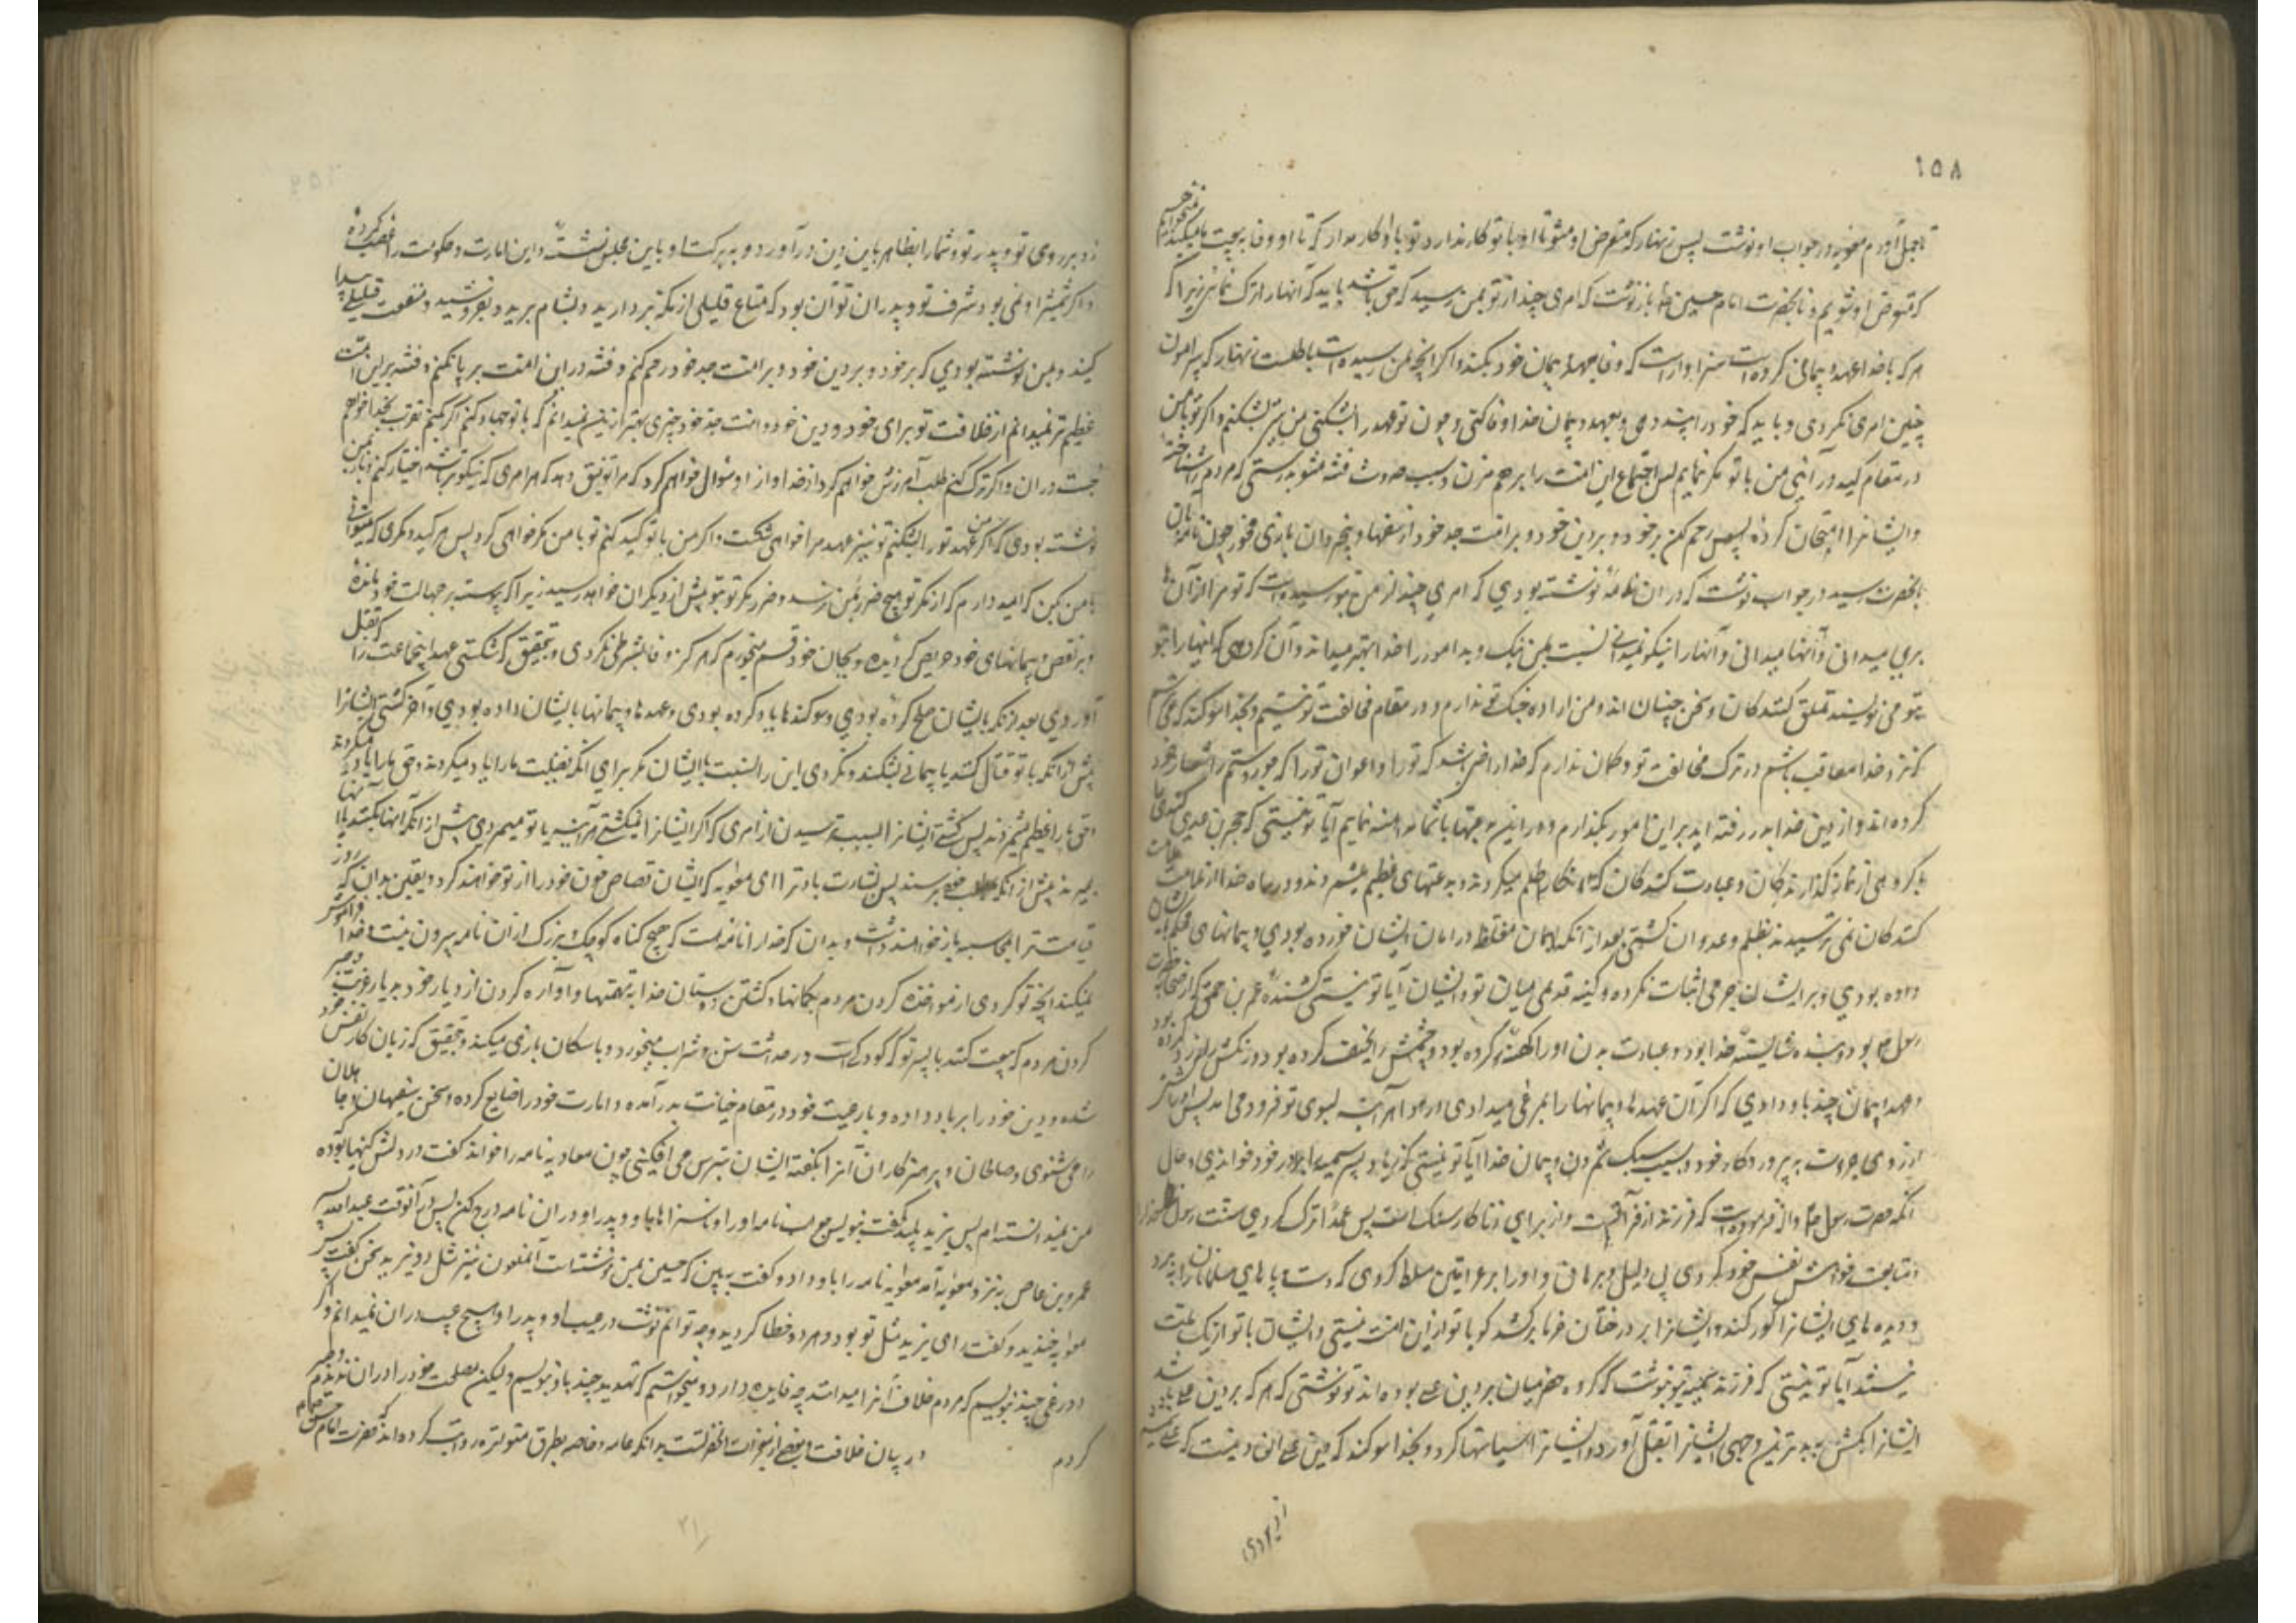 ۱۵۸
بعمل آورم معویه در جواب او نوشت پس زنهار که متعرض او مشو تا او با تو کار ندارد تو با او کار مدار که تا او وفا به بیعت ما میکند نمیخواهیم
که متعرض او شویم و بحضرت امام حسین نوشت که امری چند از تو بمن رسید که حق باشد باید که آنها را ترک نمائی زیرا که
هر که با خدا عهد و پیمانی کرده است سزاوار است که وفا بعهد و پیمان خود بکند و اگر آنچه بمن رسیده است باطلست زنهار که پیرامون
چنین امری نگردی و باید که خود را پند دهی و بعهد و پیمان خدا وفا کنی و چون تو عهد را بشکنی من نیز بشکنم و اگر تو با من
در مقام کید در آئی من با تو مکر نمایم پس اجتماع این امت را بر هم مزن و سبب حدوث فتنه مشو بدرستی که مردم را شناخته
و ایشانرا امتحان کرده پس رحم کن بر خود و بر دین خود و بر امت جد خود از سفها و نادان بازی مخور چون نامه بآن
بحضرت رسید در جواب نوشت که در آن نامه نوشته بودی که امری چند از من بتو رسیده است که تو مرا از آن
بری میدانی و آنها را نیکو نمیدانی نسبت بمن نیک و بد امور را خدا بهتر میداند و آن گروهی که اینها را بتو
بتو می نویسند تملق کنندکان و سخن چینان اند و من اراده جنک تو ندارم و در مقام مخالفت تو نیستم و بخدا سوکند که می ترسم
که نزد خدا معاقب باشم در ترک مخالفت تو و گمان ندارم که خدا راضی باشد که تو را و اعوان تو را که جور و ستم را شعار خود
کرده اند و از دین خدا بدر رفته اند بر این امور بگذارم و در این بدعتها با شما مداهنه نمایم آیا تو نیستی که حجر بن عدی کندی را
با گروهی از نماز گذارندکان و عبادت کنندکان که انکار ظلم میکردند و بدعتهای عظیم میشمردند و در راه خدا از ملامت ملامت
کنندکان نمی ترسیدند بظلم و عدوان کشتی بعد از آنکه ایمان مغلظه در امان ایشان خورده بودی و پیمانهای محکم بایشان
داده بودی و بر ایشان جرمی اثبات نکرده و کینه قدیمی میان تو و ایشان آیا تو نیستی کشنده عمرو بن حمق که از صحابه حضرت
رسول بود و بنده شایسته خدا بود و عبادت بدن او را کهنه کرده بود و چشمش را نحیف کرده بود و رنکش را زرد کرده بود
و عهد و پیمان چند باو دادی که اگر آن عهدها و پیمانها را بمرغی میدادی از هوا هر آینه بسوی تو فرود می آمد پس او را کشتی
از روی جرات بر پروردکار خود و بسبب سبک شمردن پیمان خدا آیا تو نیستی که زیاد پسر سمیه را برادر خود خواندی و حال
آنکه حضرت رسول فرموده است که فرزند از فراش است و از برای زناکار سنک است پس عمدا ترک کردی سنت رسول خدا را
و متابعت خواهش نفس خود کردی بی دلیل و برهان و او را بر عراقین مسلط کردی که دست و پاهای مسلمانان را ببرد
و دیده های ایشانرا کور کند و ایشانرا بر درختان خرما بر کشد گویا تو از این امت نیستی و ایشان با تو از یک ملت
نیستند آیا تو نیستی که فرزند سمیه بتو نوشت که گروه حضرمیان بر دین علی بوده اند تو نوشتی که هر که بر دین علی باشد
ایشانرا بکش پس بدترین وجهی ایشانرا بقتل آورد و ایشانرا سیاستها کرد و بخدا سوکند که دین علی آن دین است که علی شمشیر
از برای
زد بر روی تو و پدر تو و شما را بظاهر باین دین در آورد و به برکت او باین مجلس نشسته و این امارت و حکومت را غصب کرده
و اگر شمشیر او نمی بود شرف تو و پدران تو آن بود که متاع قلیلی از مکه بردارید و بشام برید و بفروشید و منفعت قلیلی پیدا
کنید و بمن نوشته بودی که بر خود و بر دین خود و بر امت جد خود رحم کنم و فتنه در این امت بر پا نکنم و فتنه بر این امت
عظیم تر نمیدانم از خلافت تو برای خود و دین خود و امت جد خود چیزی بهتر از این نمیدانم که با تو جهاد کنم اگر بکنم تقرب بخدا خواهم
جست در آن و اگر ترک کنم طلب آمرزش خواهم کرد از خدا و از او سؤال خواهم کرد که مرا توفیق دهد که هر امری که نیکوتر باشد اختیار کنم و باز بمن
نوشته بودی که اگر من عهد تو را بشکنم تو نیز عهد مرا خواهی شکست و اگر من با تو کید کنم تو با من مکر خواهی کرد پس هر کید و مکری که میتوانی
با من بکن که امید دارم که از مکر تو هیچ ضرر بمن نرسد و ضرر مکر تو بتو بیش از دیگران خواهد رسید زیرا که پیوسته بر جهالت خود مانده
و بر نقض پیمانهای خود حریص گردیده و بجان خود قسم میخورم که هرگز وفا بشرطی نکردی و بتحقیق که شکستی عهد این جماعت را که بقتل
آوردی بعد از آنکه بایشان صلح کرده بودی و سوکندها یاد کرده بودی و عهدها و پیمانها بایشان داده بودی و آخر کشتی ایشانرا
پیش از آنکه با تو قتال کنند یا پیمانی بشکنند و نکردی این را نسبت بایشان مگر برای آنکه فضیلت ما را یاد میکردند و حق ما را یاد میکردند
حق ما را عظیم میشمردند پس کشتی ایشانرا بسبب ترسیدن از امری که اگر ایشانرا نمیکشتی هر آینه یا تو میمردی پیش از آنکه آنها بکنند یا آنها
بمیرند پیش از آنکه بمطلب خود برسند پس بشارت باد ترا ای معویه که ایشان قصاص خون خود را از تو خواهند کرد و یقین بدان که در روز
قیامت ترا بمحاسبه باز خواهند داشت و بدان که خدا را نامه هست که هیچ کناه کوچک و بزرک از آن نامه بیرون نیست و خدا فراموش
نمیکند آنچه تو کردی از مواخذه کردن مردم بگمانها و کشتن دوستان خدا به تهمتها و آواره کردن از دیار خود به دیار غربت و جبر
کردن مردم که بیعت کنند با پسر تو که کودکی است در حداثت سن و شراب میخورد و با سکان بازی میکند و بتحقیق که زیان کار نفس خود
شده و دین خود را بر باد داده و با رعیت خود در مقام خیانت بدر آمده و امارت خود را ضایع کرده و سخن سفیهان و جاهلان
را می شنوی و صالحان و پرهیزکاران را از گفته ایشان بترس می افکنی چون معاویه نامه را خواند گفت در دلش کینها بوده که
من نمیدانستم پس یزید پلید گفت بنویس جواب نامه او را و ناسزاها باو و پدر او در آن نامه درج کن پس در آنوقت عبدالله پسر
عمرو بن عاص به نزد معویه آمد معویه نامه را باو داد و گفت ببین که حسین بمن چه نوشته است آن ملعون نیز مثل یزید سخن گفت پس
معویه خندید و گفت رای یزید مثل تو بود و هر دو خطا کردید و چه توانم نوشت در عیب او و پدر او هیچ عیب در آن نمیدانم و اگر
دروغی چند بنویسم که مردم خلاف آنرا میدانند چه فایده دارد و میخواستم که تهدید چند باو بنویسم ولیکن مصلحت خود را در آن ندیدم و صبر
کردم در بیان خلافت بعضی از معجزات آنحضرتست بدانکه عامه و خاصه بطرق متواتره روایت کرده اند که حضرت امام حسن
۲۱